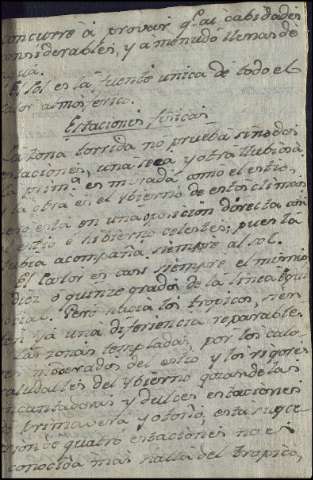 concurre á provar q.e ai cabidades
considerables, y a menudo llenas de
agua.
El sol es la fuente unica de todo el
calor atmosferico.
Estaciones fisicas
La zona torrida no prueba sino dos
estaciones, una seca y otra llubiosa
la prim.a es mirada como el estio,
y la otra en el ybierno de estos climas
pero esta en una oposicion directa con
estio e hibierno celestes, pues la
lluvia acompaña siempre al sol.
El calor es casi siempre el mismo
diez o quinze grados de la linea equi
nocial. Pero hácia los tropicos, sien
ten ya una diferencia reparable.
Las zonas templadas, por los calo
res moderados del estio y los rigores
saludables del ybierno gozan de las
encantadoras y dulces estaciones
de primavera y otoño, esta suce
sion de quatro estaciones no es
conocida mas halla del tropico,